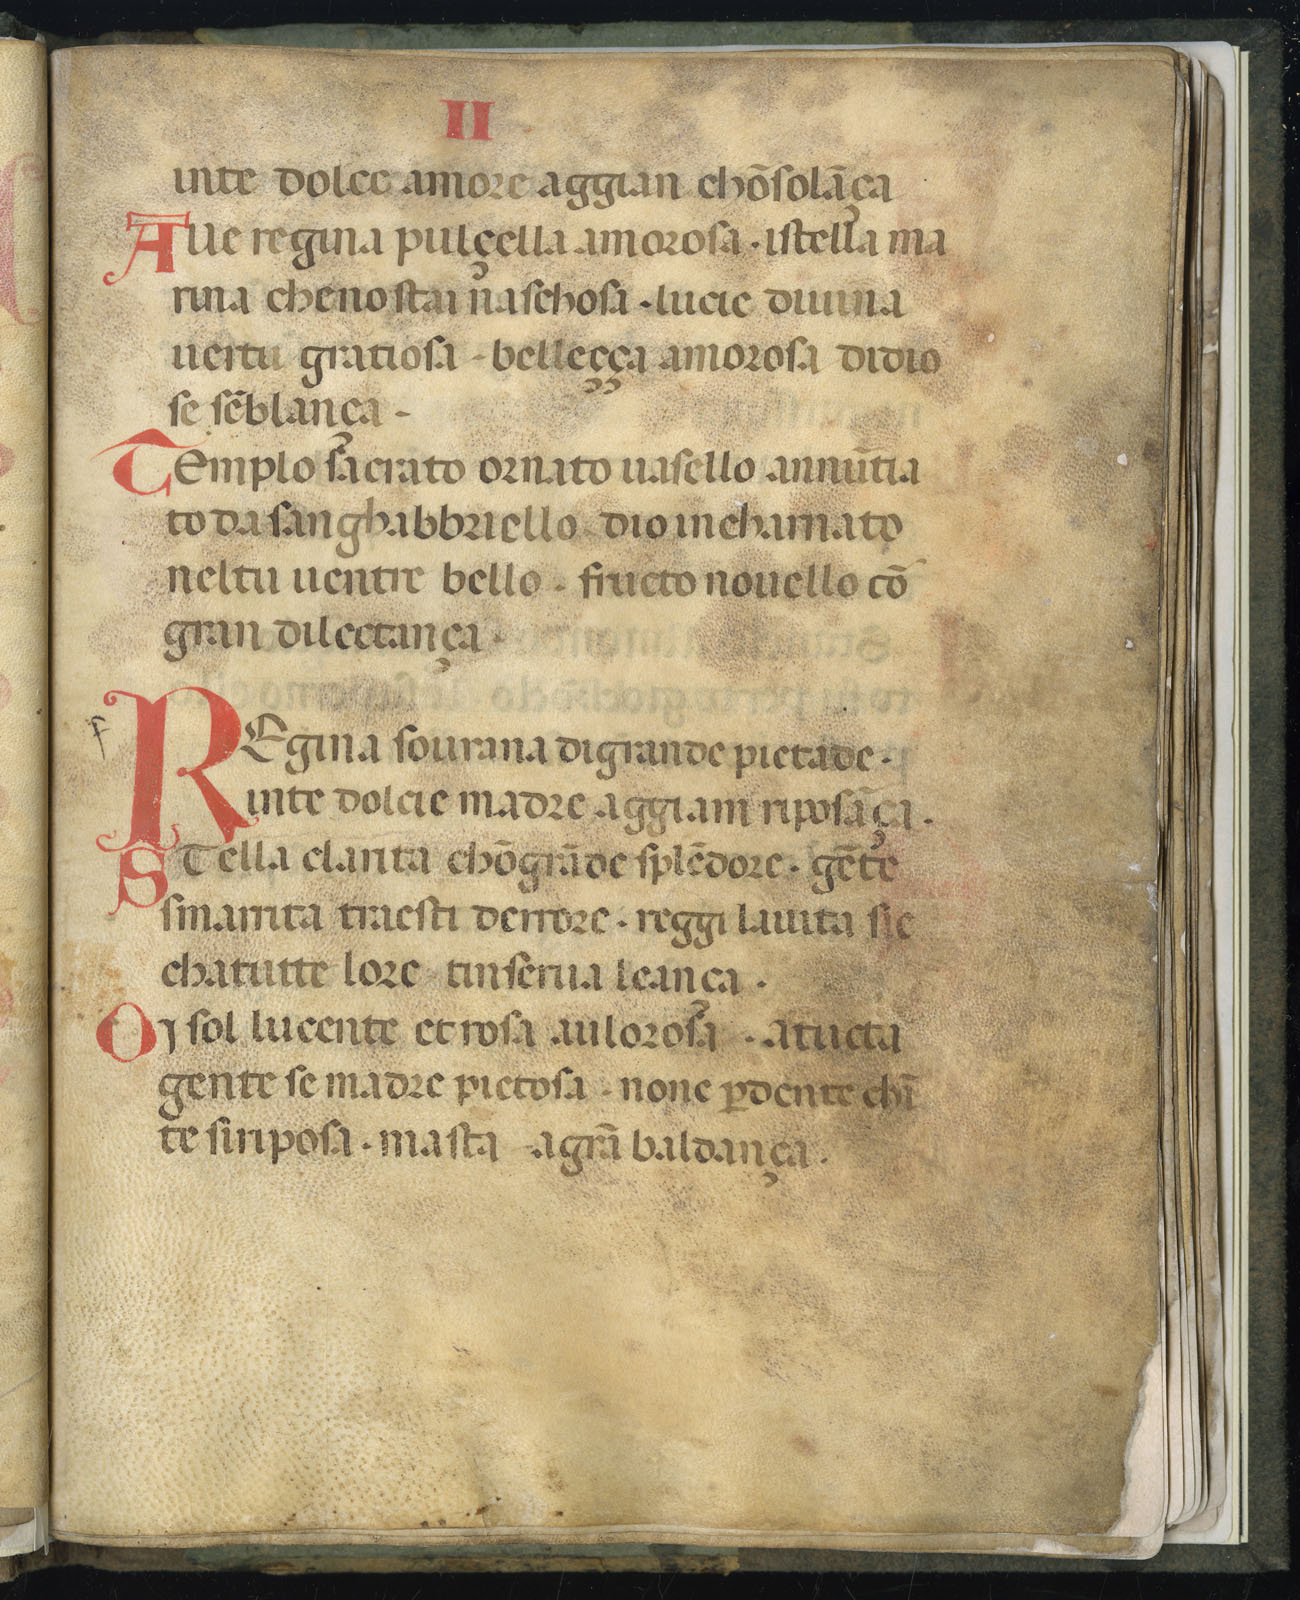 II
inte dolce amore aggian chōsolāça
Aue regina pulçella amorosa · istella ma
rina chenostai naschosa · lucie diuina
uertu gratiosa · belleçça amorosa didio
se sēblança ·
Templo sacrato ornato uasello annūtia
to da sanghabbriello dio incharnato
neltu uentre bello · fructo nouello cō
gran dilectança ·
f
REgina sourana digrande pietade ·
inte dolcie madre aggiam riposāça ·
STella clarita chōgrāde splēdore · gēte
smarrita traesti derrore · reggi lauita sie
chatutte lore tinserua leança ·
Oj sol lucente et rosa aulorosa · atucta
gente se madre pietosa · none ꝑdente chī
te siriposa · masta agrā baldança ·